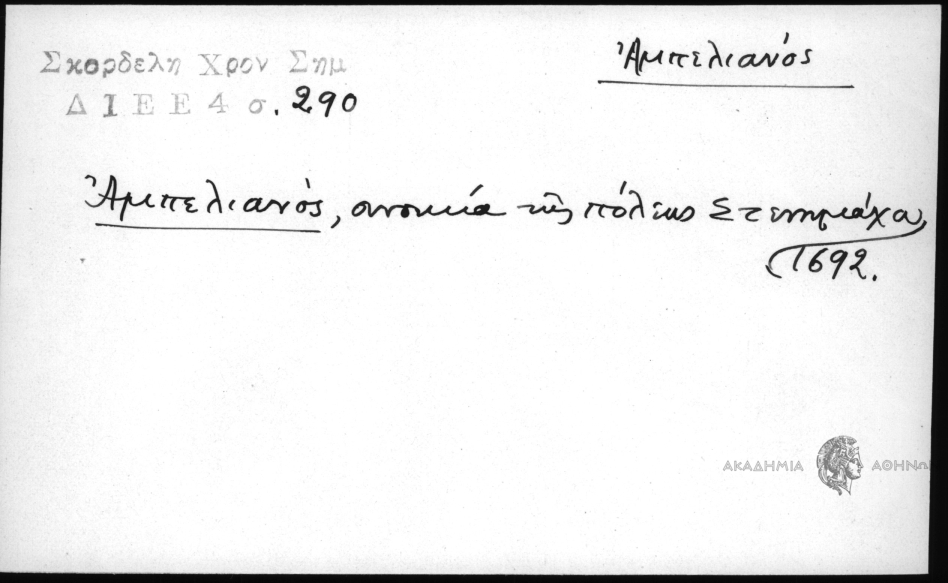 Σκορδελη Χρον Σημ
Δ Ι Ε Ε 4 σ. 290
Ἀμπελιανός
Ἀμπελιανός, συνοικία τῆς πόλεως Στενημάχου,
1692.
ΑΚΑΔΗΜΙΑ ΑΘΗΝΩΝ